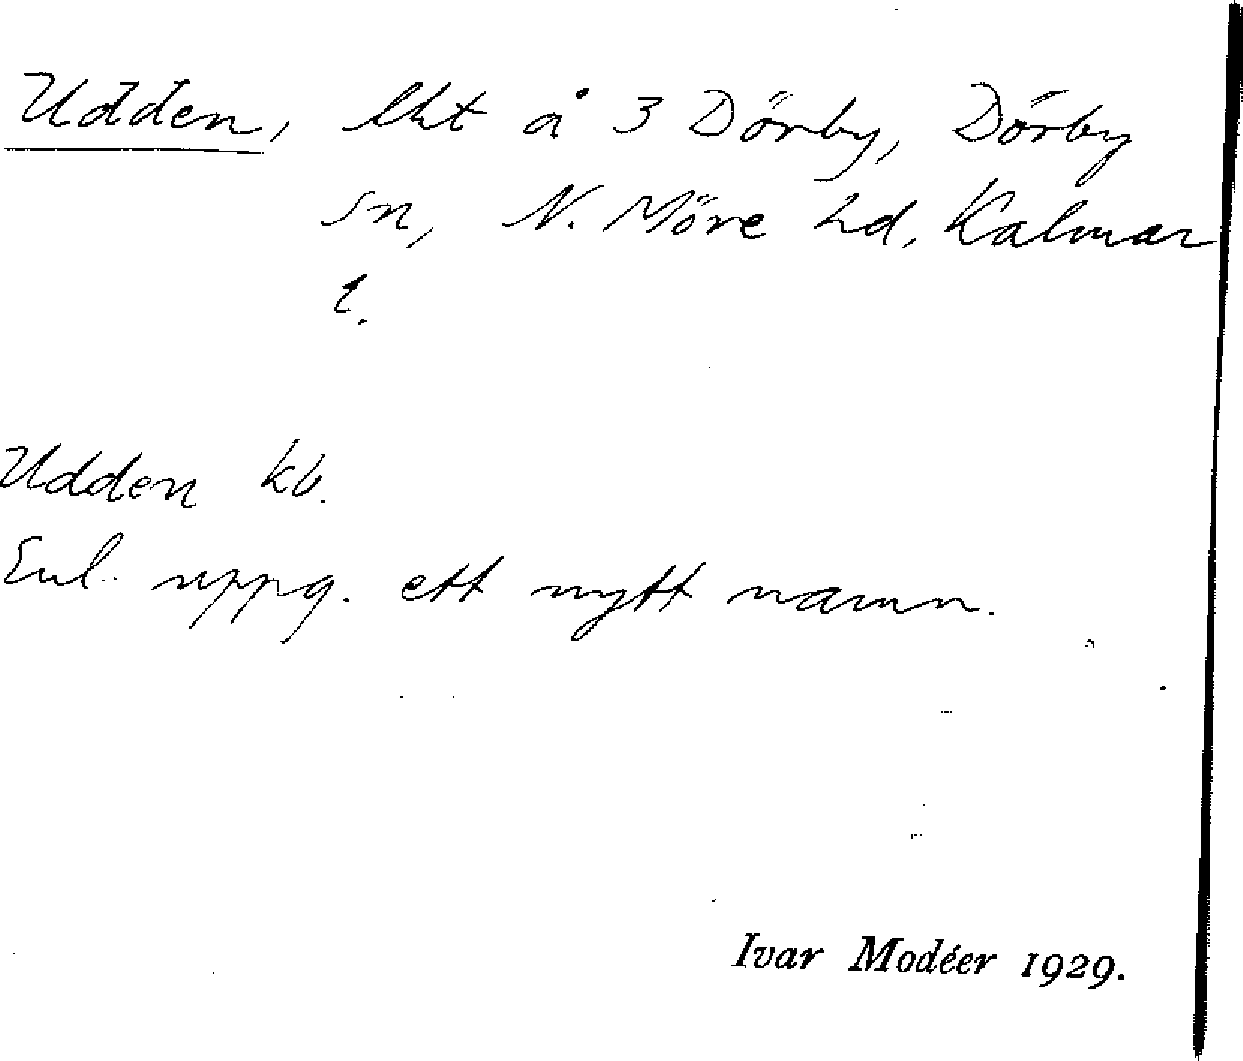 Udden, lht å 3 Dörby, Dörby
sn, N. Möre hd, Kalmar
l.
Udden kb.
Enl. uppg. ett nytt namn.
Ivar Modéer 1929.